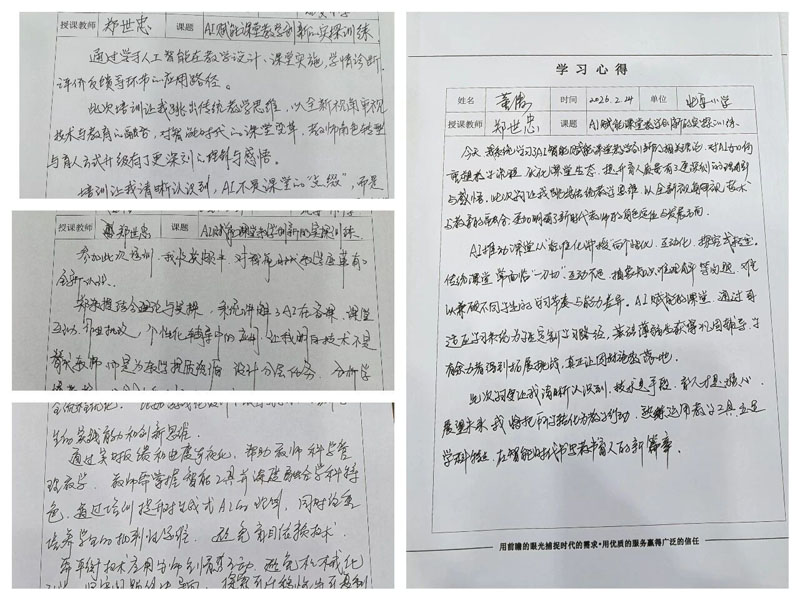 授课教师 郑世忠 课题 AI赋能课堂教学创新的实操训练
通过学习人工智能在教学设计、课堂实施,学情诊断
评价反馈等环节的应用路径。
此次培训让我跳出传统教学思维,以全新视角审视
技术与教育的融合,对智能时代的课堂变革,教师角色转型
与育人方式升级有了更深刻的理解与感悟。
培训让我清晰认识到,AI不是课堂的"点缀",而是
授课教师 郑世忠 课题 AI赋能课堂教学创新的实操训练
参加此次培训,我收获颇丰,对智能时代教学变革有了
全新认识。
郑教授结合理论与实操,系统讲解了AI在备课、课堂
互动、作业批改、个性化辅导中的应用,让我明白技术不是
替代教师,而是为教学提质
设计分层任务、分析学
生的实践能力和创新思维。
通过实时反馈和数据可视化,帮助教师科学管
理教学。教师需掌握智能工具并深度融合学科特
色,通过培训提升对生成式AI的
同时注重
培养学生的批判性思维,避免盲目依赖技术。
需平衡技术应用与师生情感互动,避免机械化
学习心得
姓名 时间 2026.2.24 单位 小学
授课教师 郑世忠 课题 AI赋能课堂教学创新的实操训练
今天我系统学习了AI智能赋能课堂教学创新的相关理论,对AI如何
重塑教学流程、优化课堂生态、提升育人质量有了更深刻的理解
与感悟。此次学习让我跳出传统教学思维,从全新视角审视技术
与教育的融合,更加明确了新时代教师的角色定位与发展方向。
AI推动课堂从标准化讲授向个性化、互动化、探究式转变。
传统课堂常面临"一刀切"、互动不足、抽象知识难理解等问题,难
以兼顾不同学生的学习节奏与能力差异。AI赋能的课堂,通过自
适应学习系统为学生定制学习路径,基础薄弱生获得巩固辅导,学
有余力者得到拓展挑战,真正让因材施教落地。
此次学习更让我清晰认识到,技术是手段,育人才是核心。
展望未来,我将把所学转化为教学行动,熟练运用教学工具,立足
学科特点,在智能时代书写教书育人的新篇章。
用前瞻的眼光捕捉时代的需求•用优质的服务赢得广泛的信任